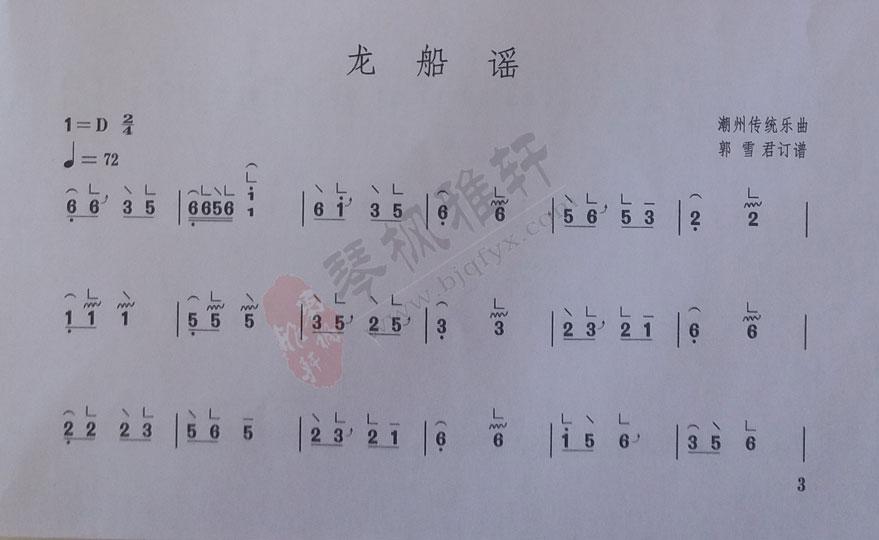 龙船谣
1=D 2/4
♩=72
潮州传统乐曲
郭雪君订谱
6 6 3 5 | 6656 i 1 | 6 i 3 5 | 6 6 | 5 6 5 3 | 2 2 |
1 1 1 | 5 5 5 | 3 5 2 5 | 3 3 | 2 3 2 1 | 6 6 |
2 2 2 3 | 5 6 5 | 2 3 2 1 | 6 6 | i 5 6 | 3 5 6 |
3
琴枫雅轩
www.bjqfyx.com